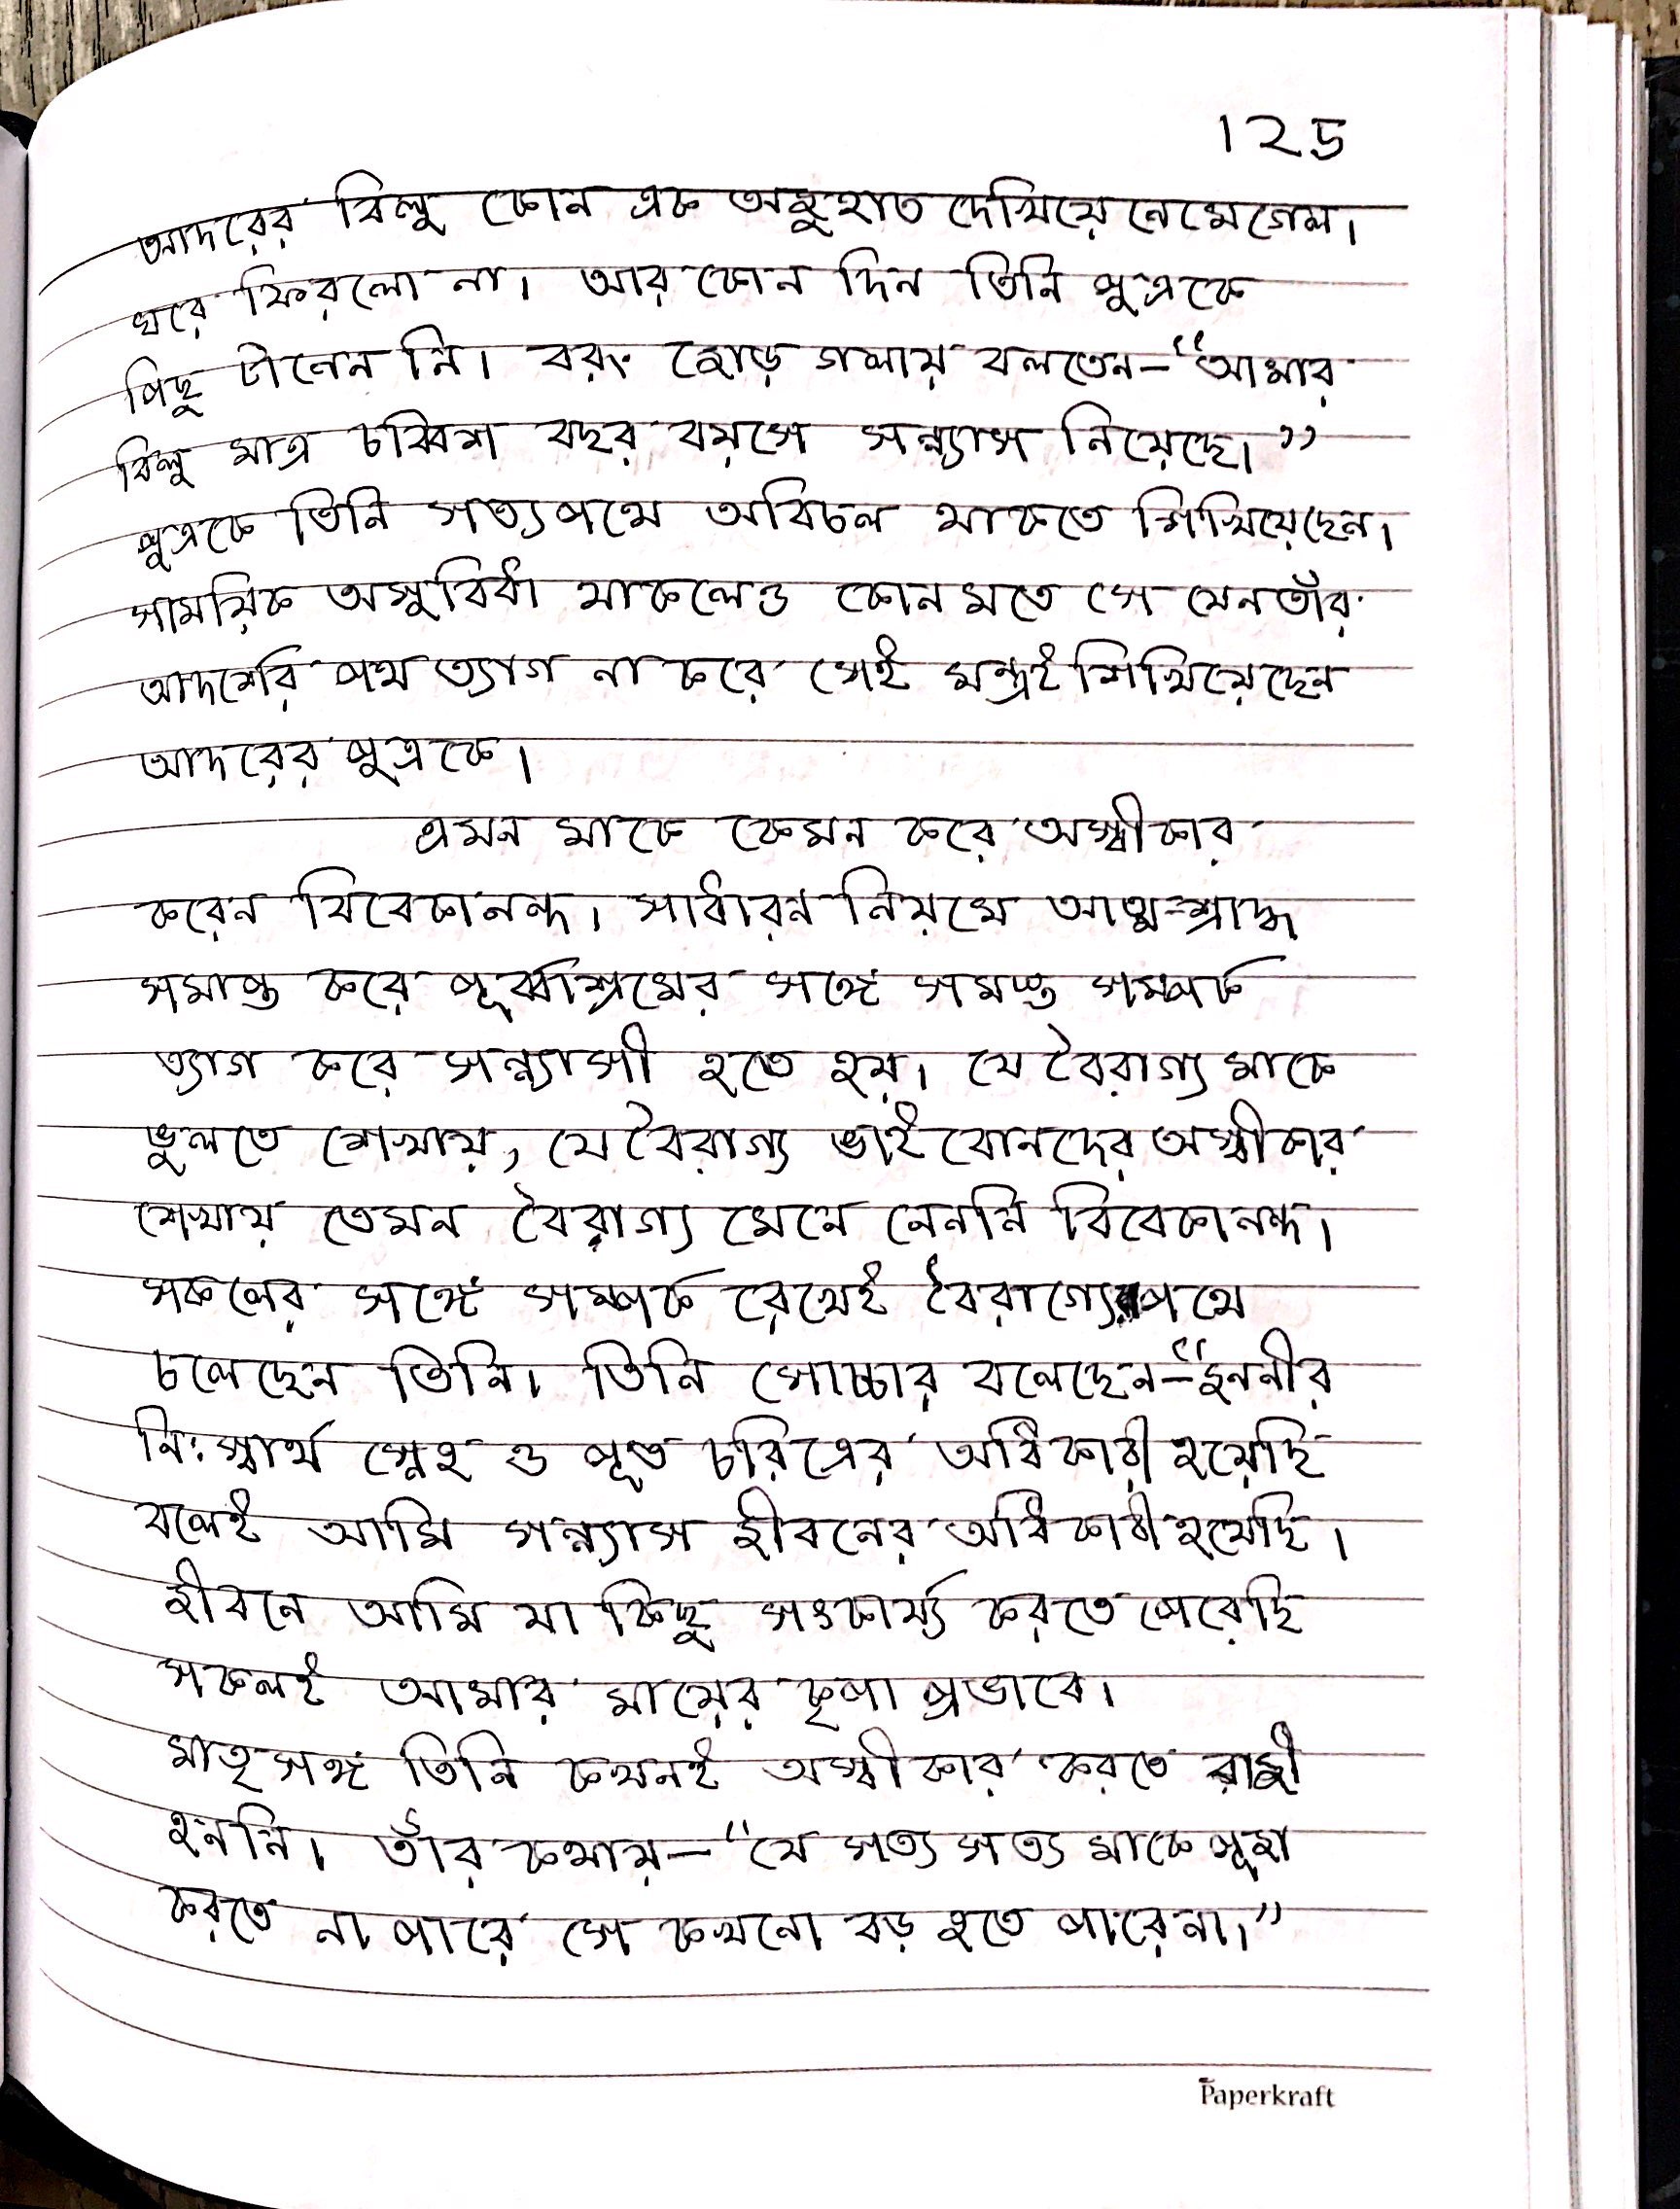 125
আদরের বিলু কোন এক অজুহাত দেখিয়ে নেমে গেল।
ঘরে ফিরলো না। আর কোন দিন তিনি পুত্রকে
পিছু টানেন নি। বরং জোড় গলায় বলতেন - "আমার
বিলু মাত্র চব্বিশ বছর বয়সে সন্ন্যাস নিয়েছে।"
পুত্রকে তিনি সত্যপথে অবিচল থাকতে শিখিয়েছেন।
সাময়িক অসুবিধা থাকলেও কোন মতে সে যেন তাঁর
আদর্শের পথ ত্যাগ না করে সেই মন্ত্রই শিখিয়েছেন
আদরের পুত্রকে।
এমন মাকে কেমন করে অস্বীকার
করেন বিবেকানন্দ। সাধারন নিয়মে আত্ম-শ্রাদ্ধ
সমাপ্ত করে পূর্ব্বাশ্রমের সঙ্গে সমস্ত সম্পর্ক
ত্যাগ করে সন্ন্যাসী হতে হয়। যে বৈরাগ্য মাকে
ভুলতে শেখায়, যে বৈরাগ্য ভাই বোনদের অস্বীকার
শেখায় তেমন বৈরাগ্য মেনে নেননি বিবেকানন্দ।
সকলের সঙ্গে সম্পর্ক রেখেই বৈরাগ্যের পথে
চলেছেন তিনি। তিনি সোচ্চার বলেছেন - "জননীর
নিঃস্বার্থ স্নেহ ও পূত চরিত্রের অধিকারী হয়েছি
বলেই আমি সন্ন্যাস জীবনের অধিকারী হয়েছি।
জীবনে আমি যা কিছু সৎকার্য্য করতে পেরেছি
সকলই আমার মায়ের কৃপা প্রভাবে।
মাতৃসঙ্গ তিনি কখনই অস্বীকার করতে রাজী
হননি। তাঁর কথায় - "যে সত্য সত্য মাকে পূজা
করতে না পারে সে কখনো বড় হতে পারে না।"
Paperkraft